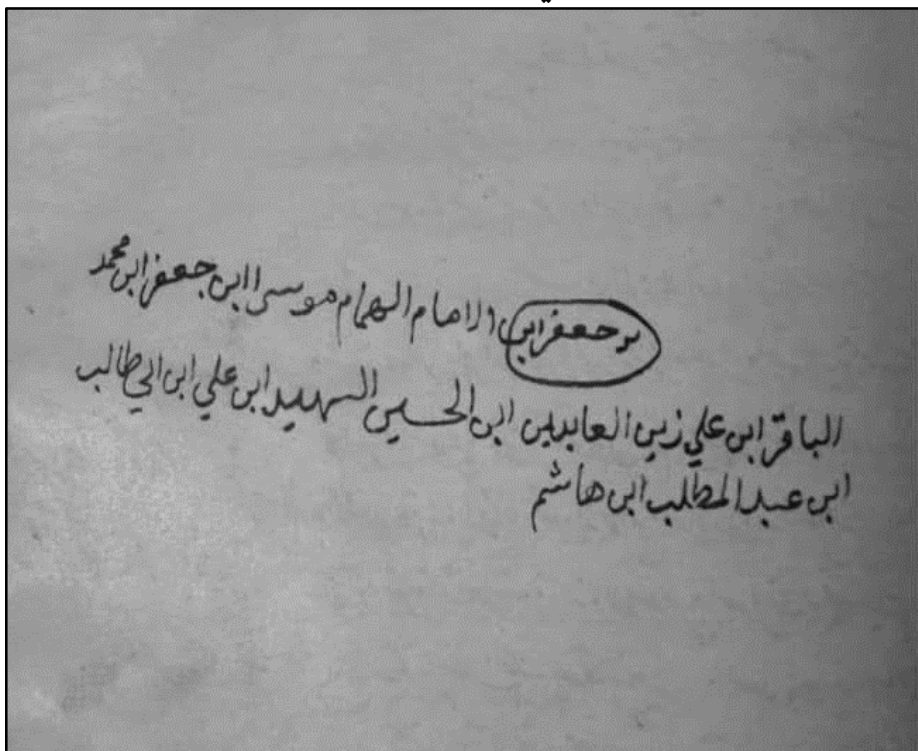 بن جعفر ابن الامام الهمام موسى ابن جعفر ابن محمد
الباقر ابن علي زين العابدين ابن الحسين الشهيد ابن علي ابن ابي طالب
ابن عبد المطلب ابن هاشم